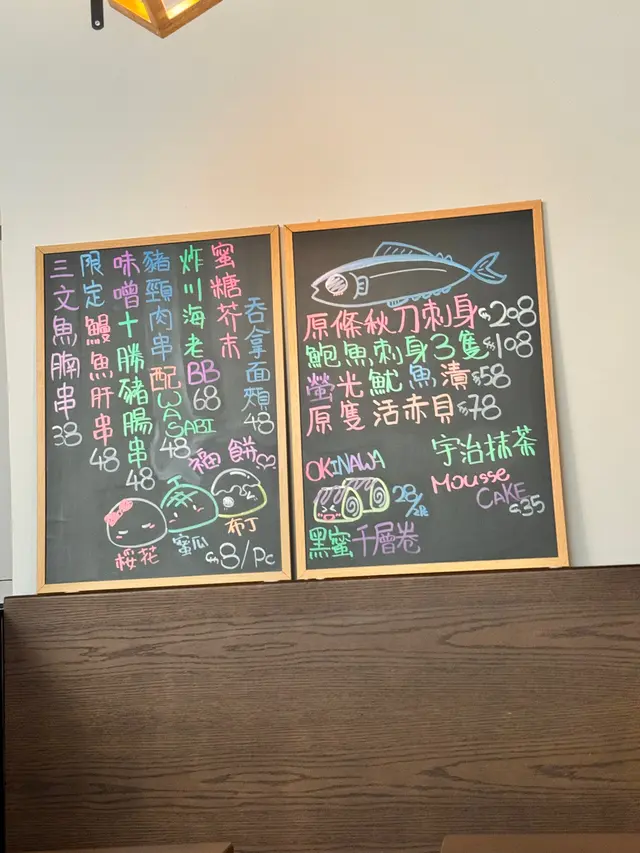 三文魚腩串
38
限定鰻魚肝串
48
味噌十勝豬腸串
48
豬頸肉串
配WASABI
48
炸川海老
BB
68
蜜糖芥末
吞拿面頰
48
福餅
桜花
蜜瓜
布丁
$8/Pc
原條秋刀刺身$208
鮑魚刺身3隻$108
螢光魷魚漬$58
原隻活赤貝$78
OKINAWA
28/2張
黑蜜千層卷
宇治抹茶
Mousse
CAKE
$35